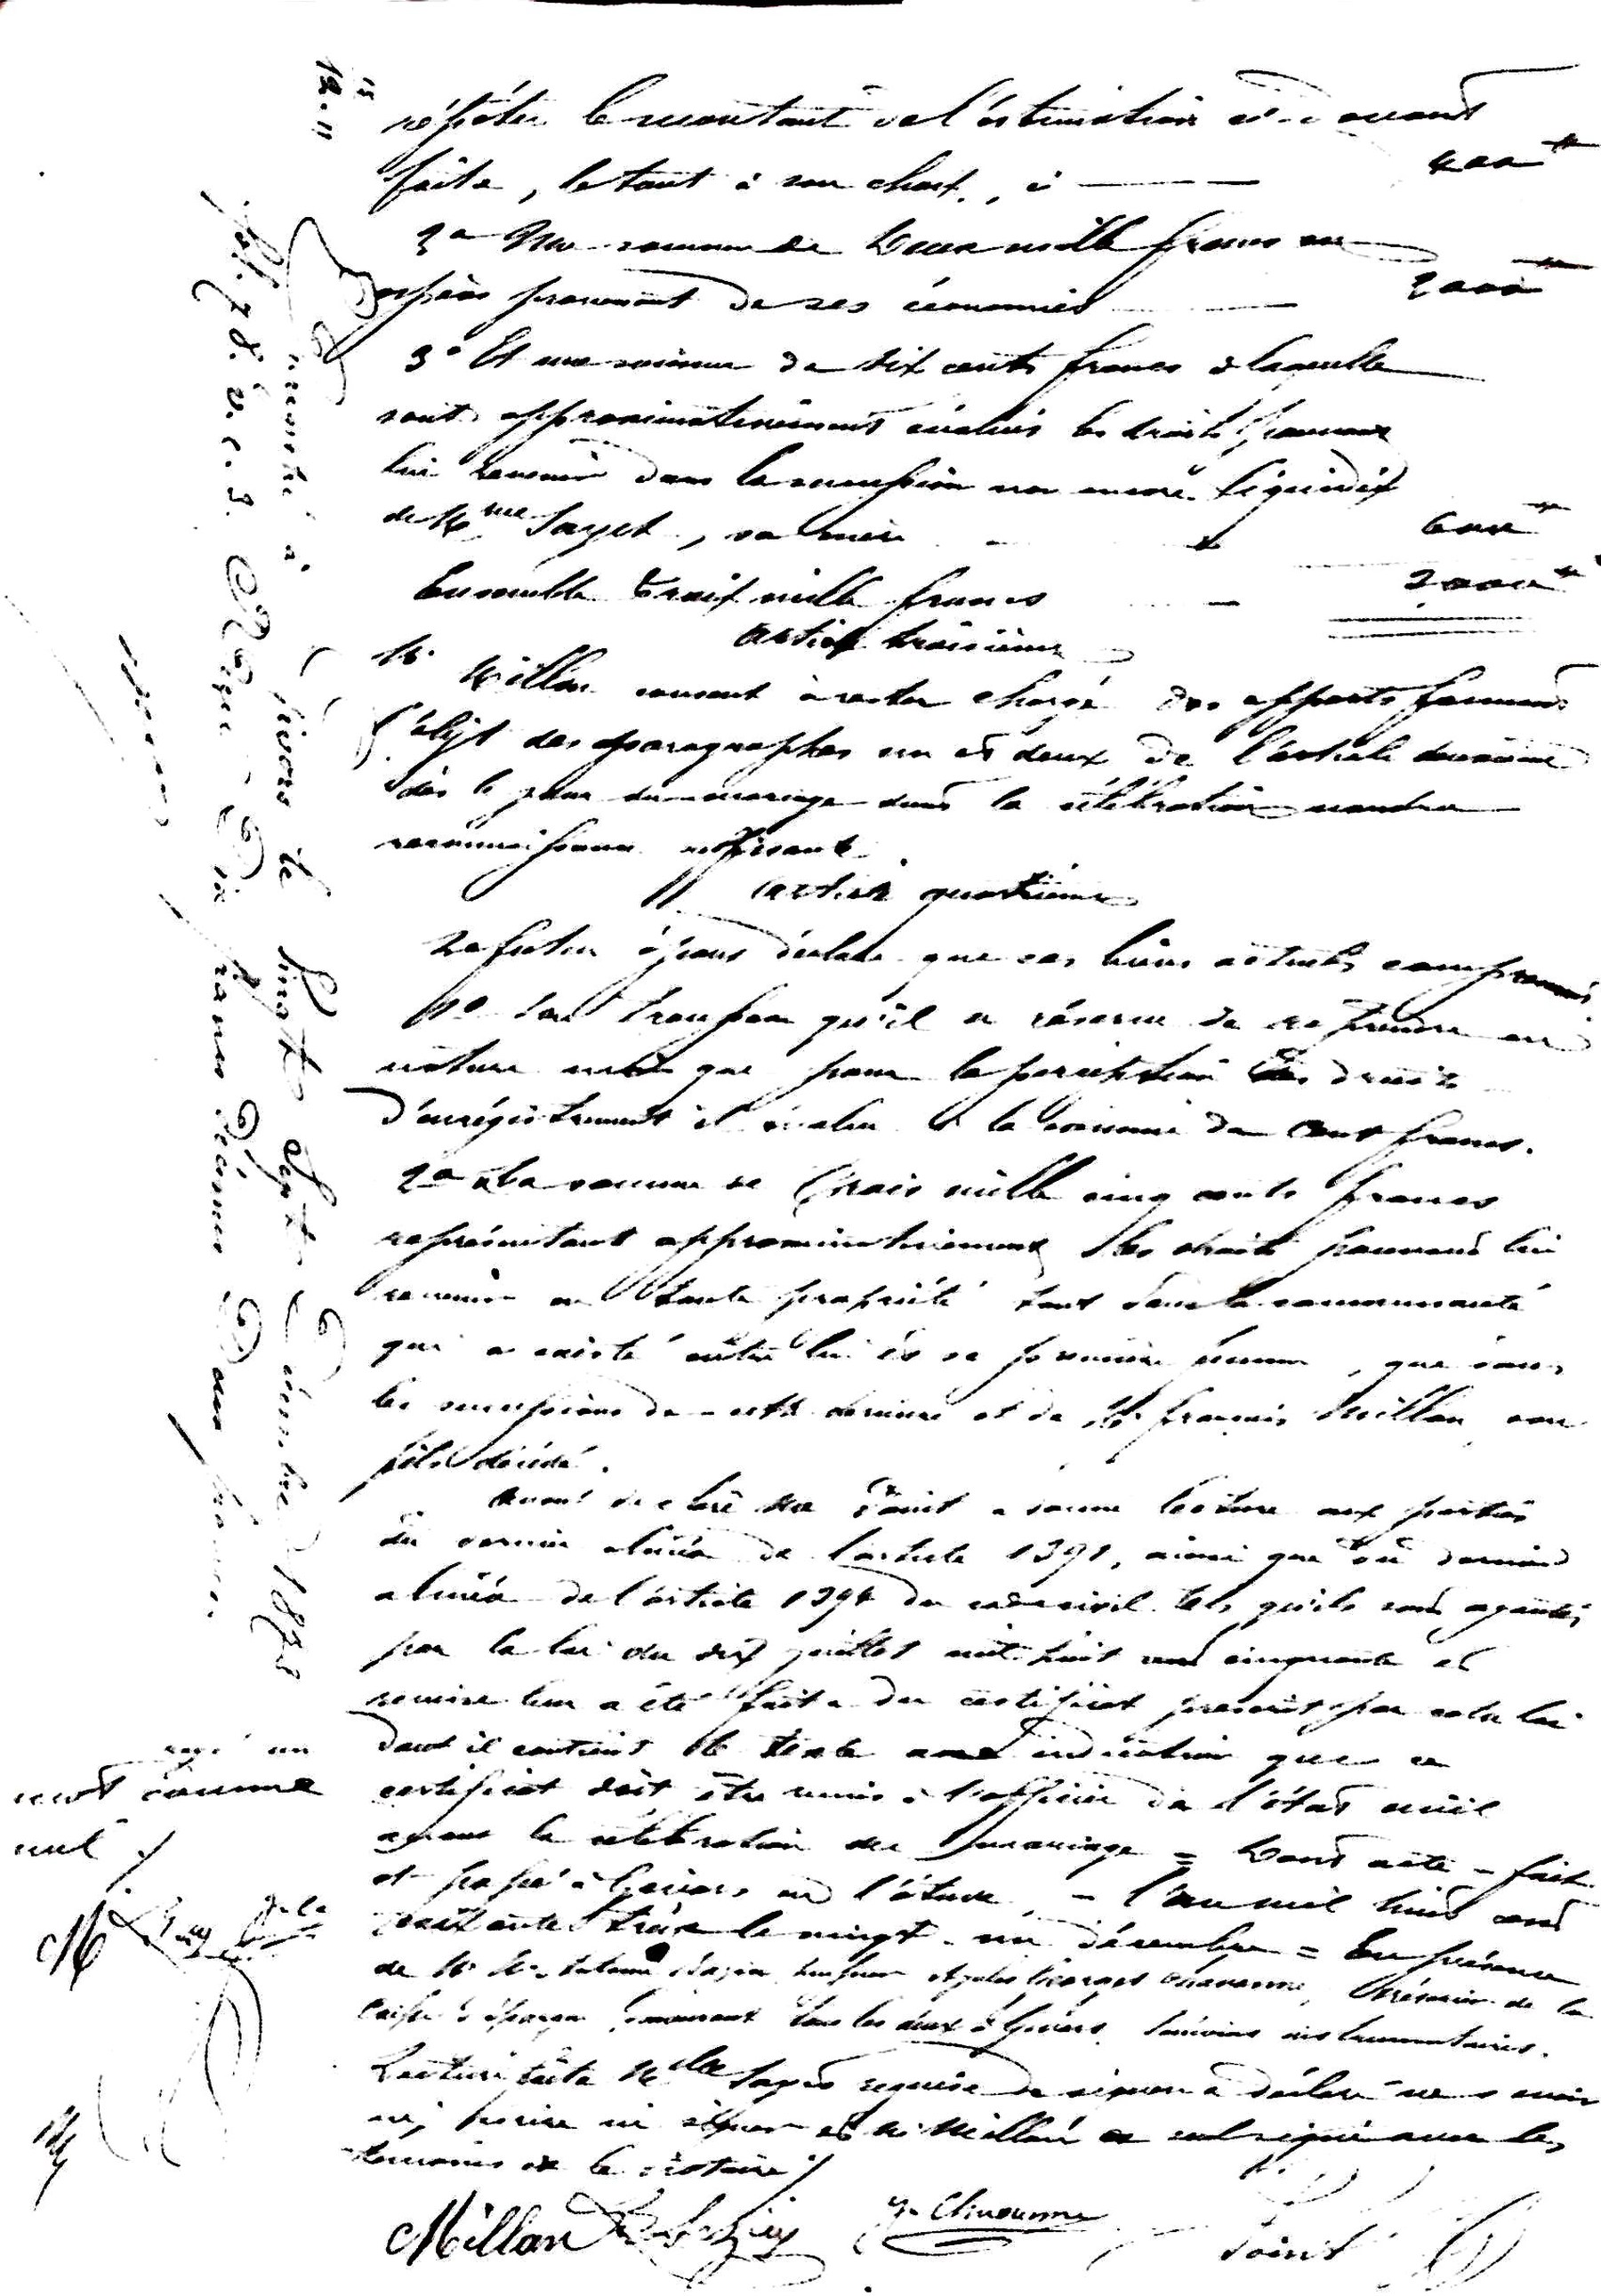 répéter le montant de l'estimation ci-avant
faite, le tout à son choix, à 400
2° Une somme de Deux mille francs en
espèces provenant de ses économies 2000
3° Et une somme de six cents francs à laquelle
sont approximativement évalués les droits pouvant
lui revenir dans la succession non encore liquidée
de Mme Sayet, sa mère 600
Ensemble trois mille francs
article troisième
M. Millan consent à rester chargé des apports formant
l'objet des paragraphes un et deux de l'article deuxième
dès le jour du mariage dont la célébration vaudra
reconnaissance suffisante
article quatrième
Le futur époux déclare que ses biens actuels comprennent
1° Son trousseau qu'il se réserve de reprendre en
nature mais que pour la perception des droits
d'enregistrement il évalue à la somme de Cent francs.
2° La somme de Trois mille cinq cents francs
représentant approximativement les droits pouvant lui
revenir en toute propriété tant dans la communauté
qui a existé entre lui et sa première femme, que dans
les successions de cette dernière et de M. françois Millan son
fils décédé.
Avant de clore Me Point a donné lecture aux parties
du dernier alinéa de l'article 1391, ainsi que du dernier
alinéa de l'article 1394 du code civil tels qu'ils sont ajoutés
par la loi du dix juillet mil huit cent cinquante et
remise leur a été faite du certificat prescrit par cette loi
dont il contient le texte avec indication que ce
certificat doit être remis à l'officier de l'état civil
avant la célébration du mariage = Dont acte - fait
et passé à Givors en l'étude, - l'an mil huit cent
soixante treize le vingt-un décembre = En présence
de M. M. Antoine tous les deux à Givors, témoins instrumentaires.
Lecture faite Melle Sayet requise de signer a déclaré ne savoir
ni écrire ni signer et M. Millan a seul signé avec les
témoins et le notaire /
Millan
J. Chavanne
Point
rayé un
mot comme
nul /
M
Enregistré à Givors le vingt sept Décembre 1873